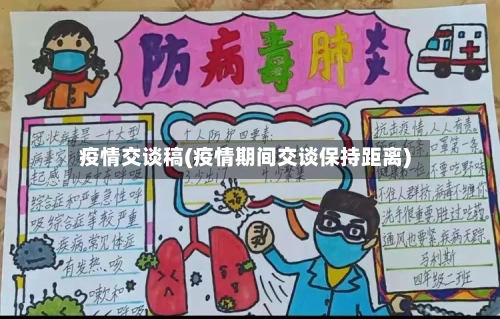 防病毒肺炎
疫情交谈稿(疫情期间交谈保持距离)
冠状病毒是一个大型
病毒家
起感冒以及中东呼吸
综合征和严重急性呼
吸综合征等较严重
疾病,常见体征
有发热、咳
嗽和
个人防护四要素
3.少出门 4.少聚集
抗击疫情,人人有责。
口罩第一条
不要吃野味
不住人群挤,病毒不缠你
洗手很重要,胜过吃药
通风也要紧,疾病无踪
马利斯
四年级二班